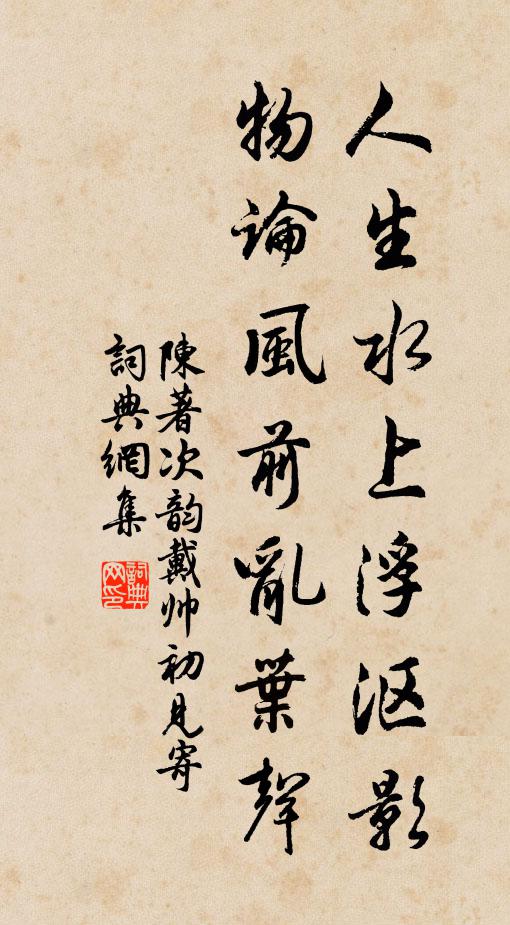 人生水上浮沤影
物論風前亂葉聲
陳著次韵戴帅初見寄
詞典網集
詞典网印